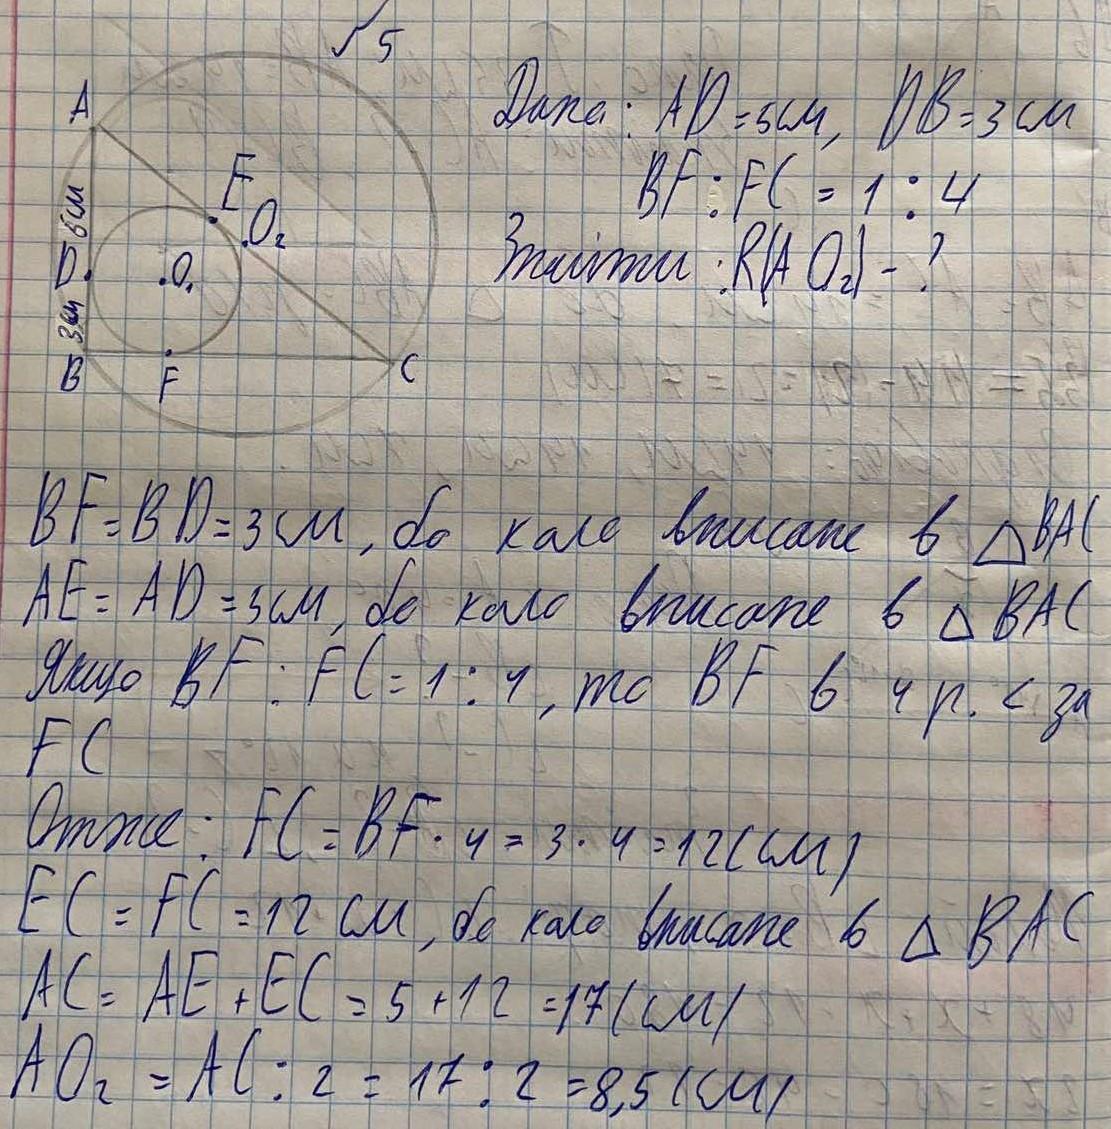 √5
Дано: AD = 5см, DB = 3 см
BF : FC = 1 : 4
Знайти : R(AO₂) - ?
A
E
O₂
5см
D
O₁
3см
B
F
C
BF = BD = 3 см, бо коло вписане в △ BAC
AE = AD = 5см, бо коло вписане в △ BAC
Якщо BF : FC = 1 : 4, то BF в 4 р. < за
FC
Отже: FC = BF · 4 = 3 · 4 = 12 (см)
EC = FC = 12 см, бо коло вписане в △ BAC
AC = AE + EC = 5 + 12 = 17 (см)
AO₂ = AC : 2 = 17 : 2 = 8,5 (см)